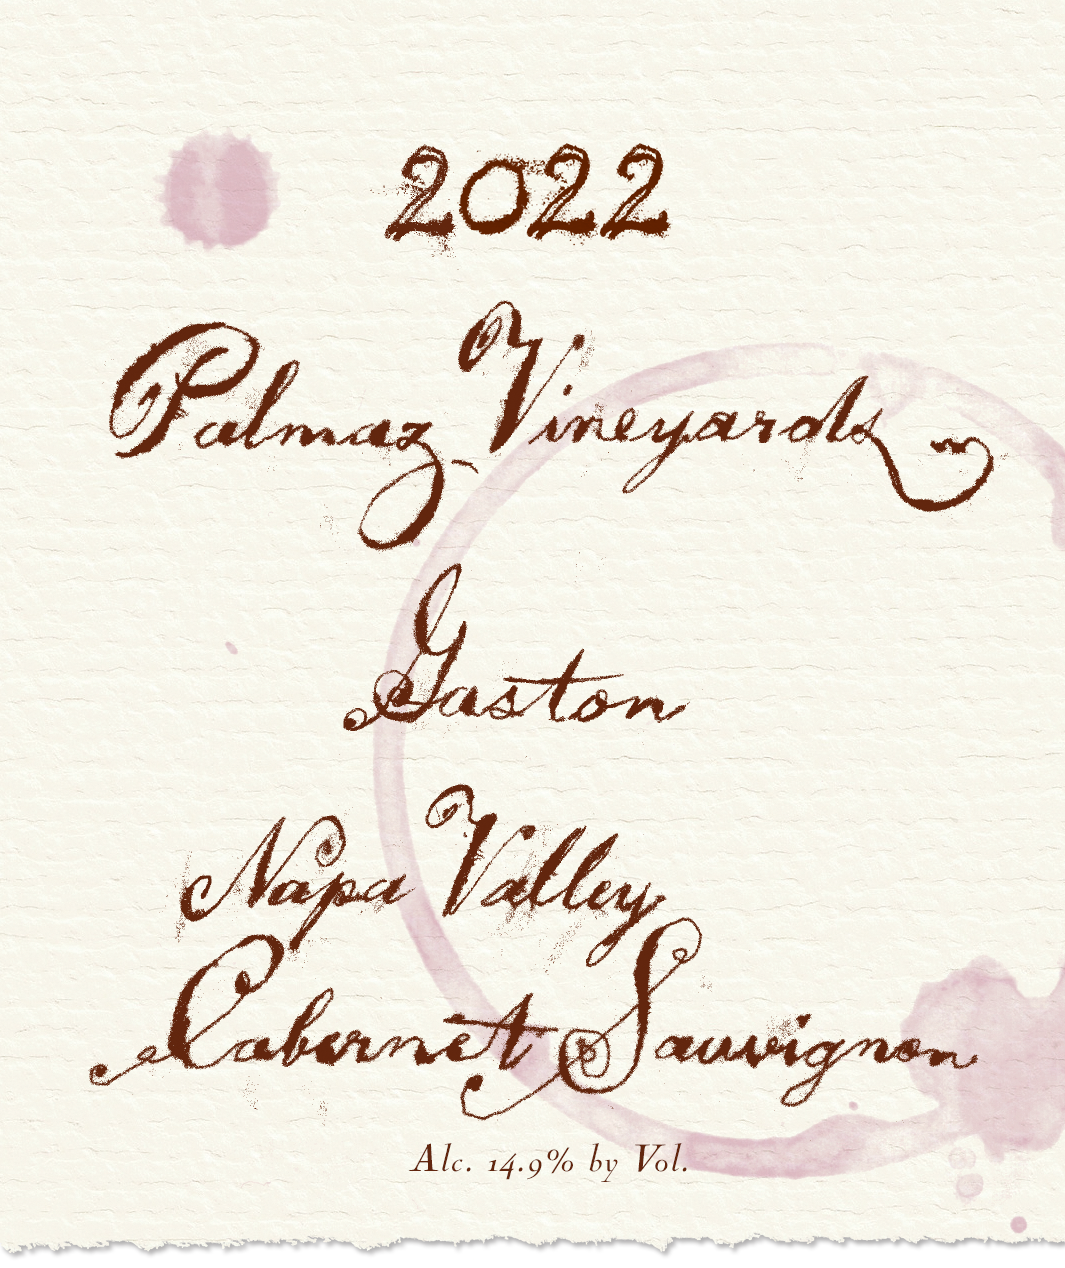 2022
Palmaz Vineyards
Gaston
Napa Valley
Cabernet Sauvignon
Alc. 14.9% by Vol.